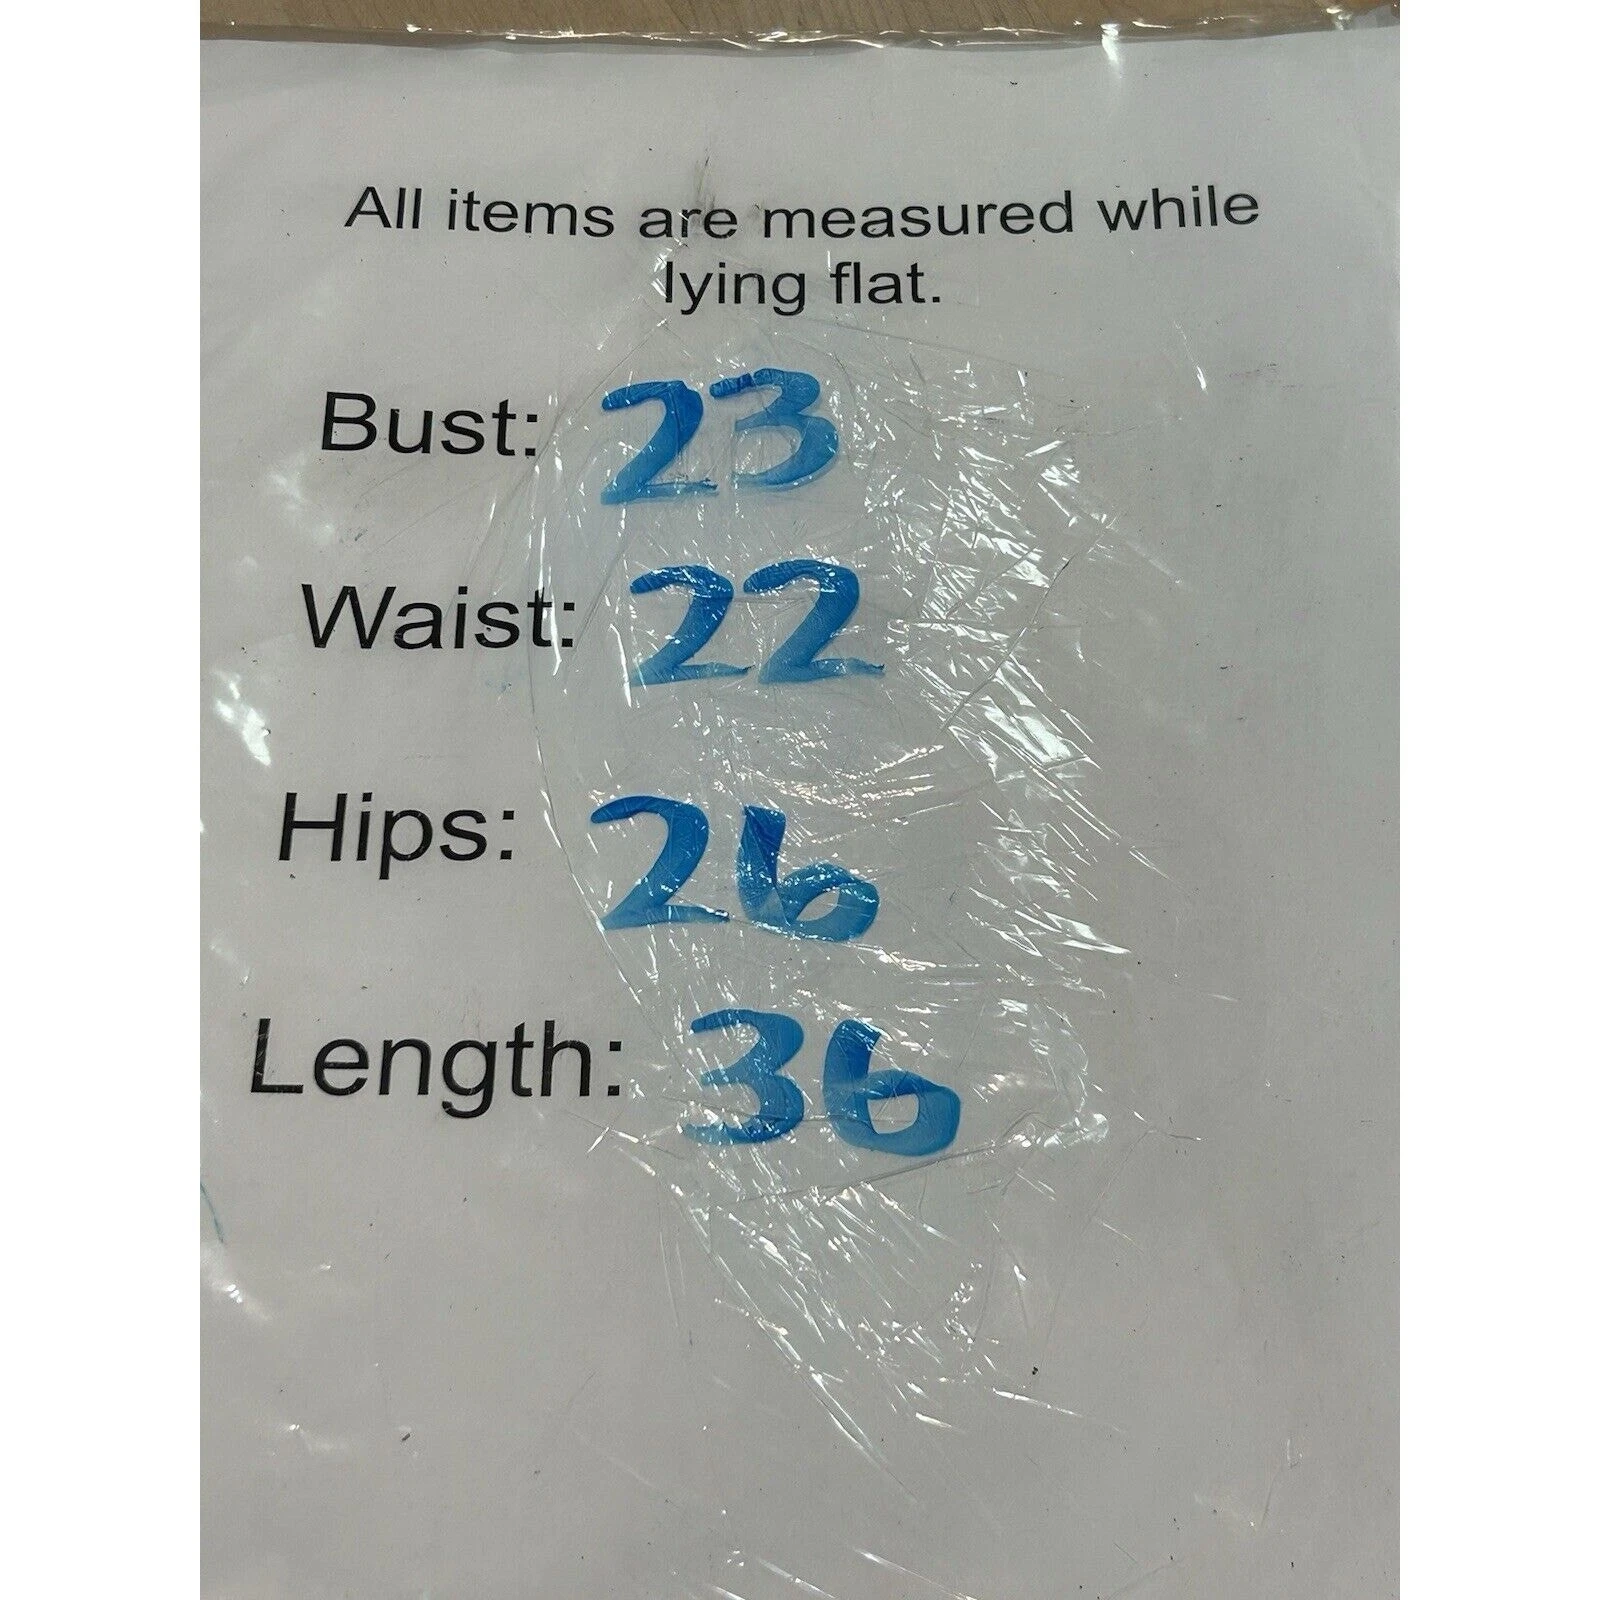 All items are measured while
lying flat.
Bust: 23
Waist: 22
Hips: 26
Length: 36